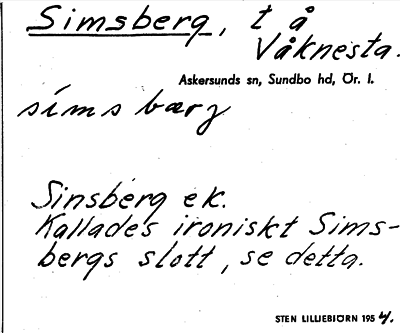 Simsberg, t å
Våknesta.
Askersunds sn, Sundbo hd, Ör. l.
sims bærj
Sinsberg ek.
Kallades ironiskt Sims-
bergs slott, se detta.
STEN LILLIEBJÖRN 195